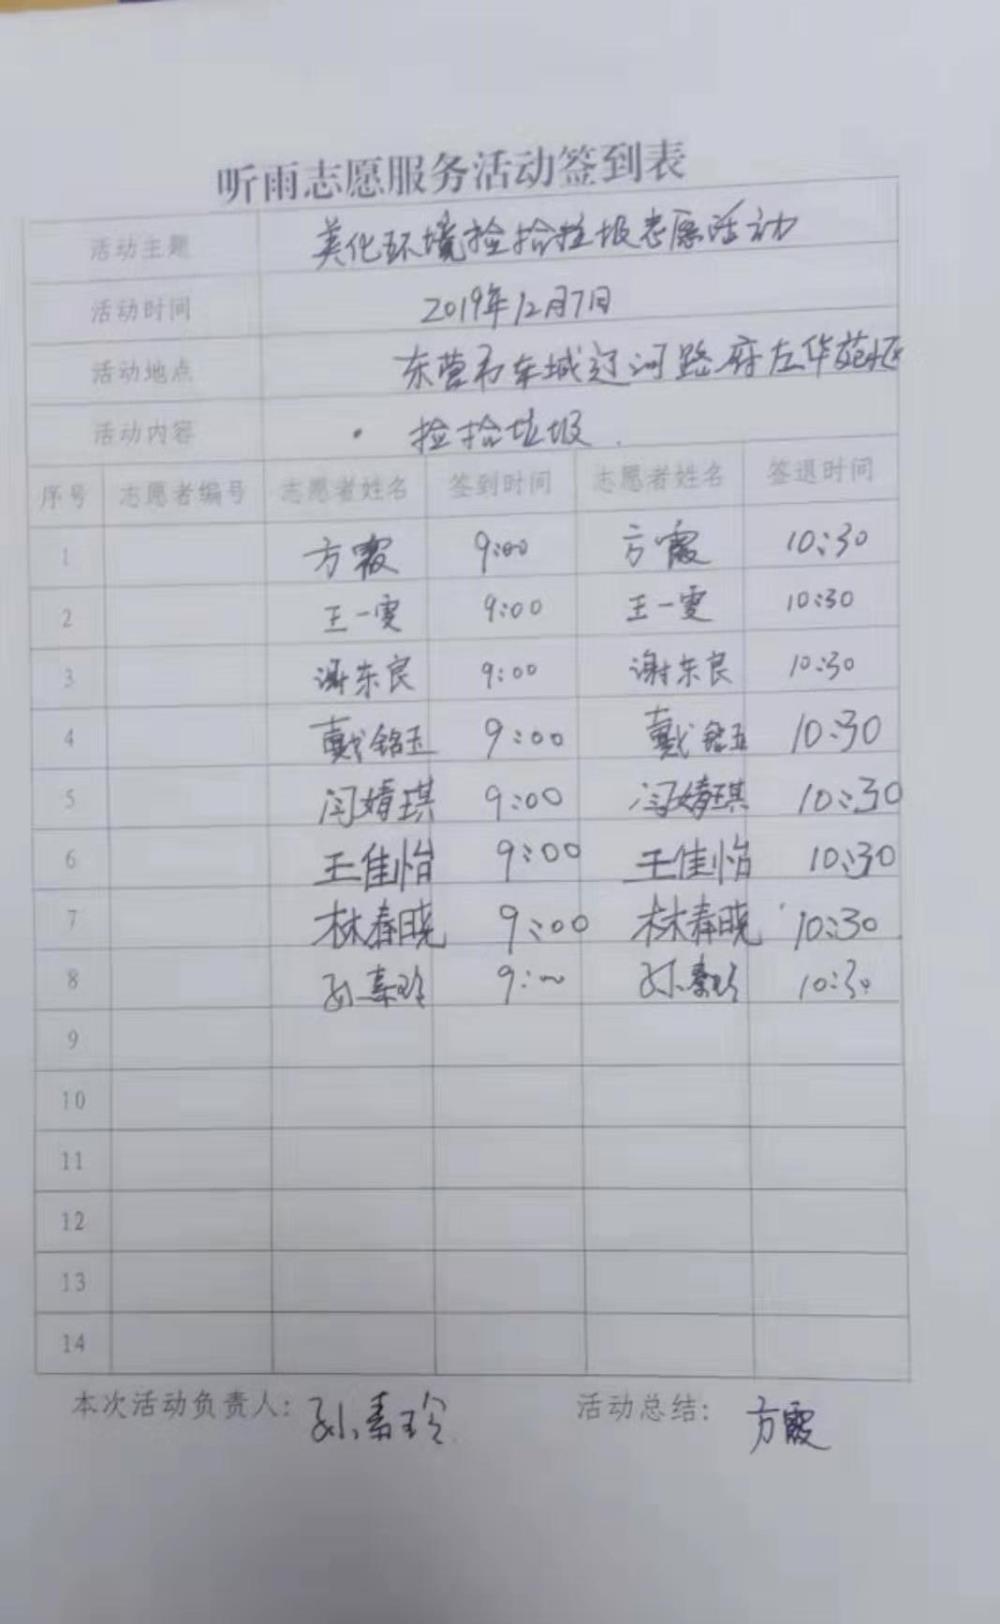 听雨志愿服务活动签到表
活动主题 美化环境捡拾垃圾志愿活动
活动时间 2019年12月7日
活动地点 东营市东城辽河路府左华苑小区
活动内容 捡拾垃圾.
序号 志愿者编号 志愿者姓名 签到时间 志愿者姓名 签退时间
1 方霞 9:00 方霞 10:30
2 王一雯 9:00 王一雯 10:30
3 谢东良 9:00 谢东良 10:30
4 戴铭玉 9:00 戴铭玉 10:30
5 闫婧琪 9:00 闫婧琪 10:30
6 王佳怡 9:00 王佳怡 10:30
7 林春晓 9:00 林春晓 10:30
8 孙秦玲 9:00 孙秦玲 10:30
9
10
11
12
13
14
本次活动负责人: 孙秦玲 活动总结: 方霞